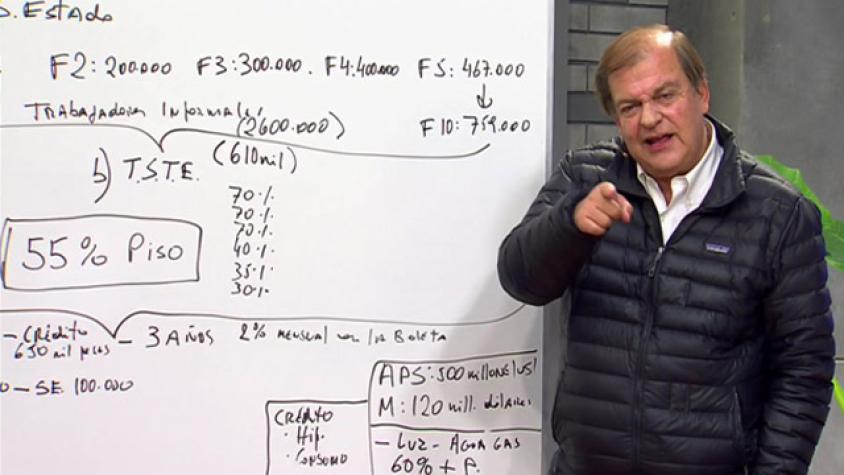 D. Estado
F2: 200.000 F3: 300.000. F4: 400.000 F5: 467.000
F10: 759.000
Trabajadores Informales
(2600.000)
b) T.S.T.E. (610 mil)
70%
70%
70%
40%
35%
30%
55% Piso
- Crédito
650 mil pesos
- 3 AÑOS 2% mensual en la Boleta
- SE. 100.000
APS: 500 millones US$
M: 120 mill. dólares
- Luz - Agua Gas
60% + P.
Crédito
· Hip.
· Consumo
patagonia